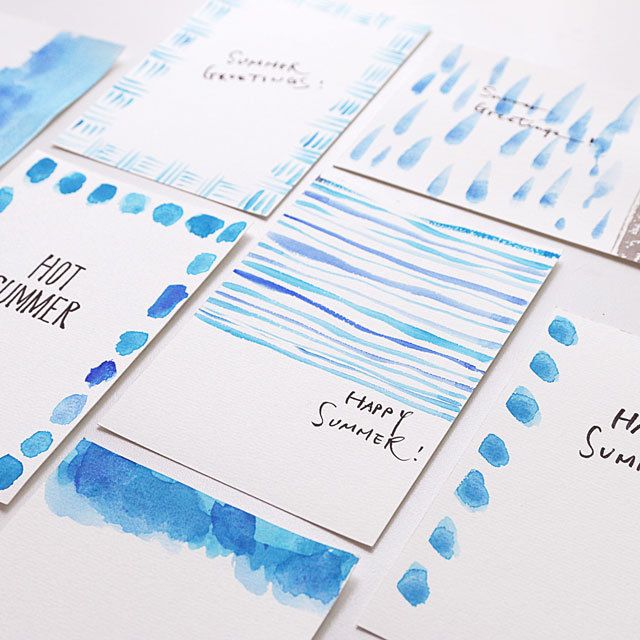 SUMMER
GREETINGS!
Summer
Greetings
HOT
SUMMER
HAPPY
SUMMER!
HA
SUMM